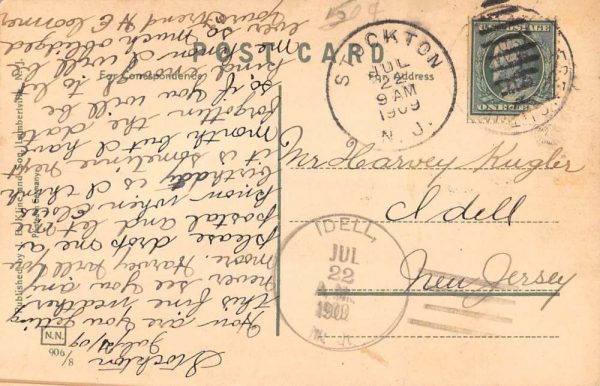 POST CARD
For Correspondence
For Address
STOCKTON
JUL
22
9 AM
1909
N. J.
ONE CENT
Mr Harvey Kugler
Idell
New Jersey
IDELL,
JUL
22
A.M.
1909
N. J.
Stockton
July 21/09
How are you getting
this fine weather
never see you any
moore. Harvey will you
please drop me a
postal and let me
know when
birthday is I think
it is sometime next
month but I have
forgotten the date
so if you will be
kind enough to let
me know I will be
ever so much obliged
your friend H E
Published by Kline and Son, Lambertville, N. J.
Germany
N.N.
906/8